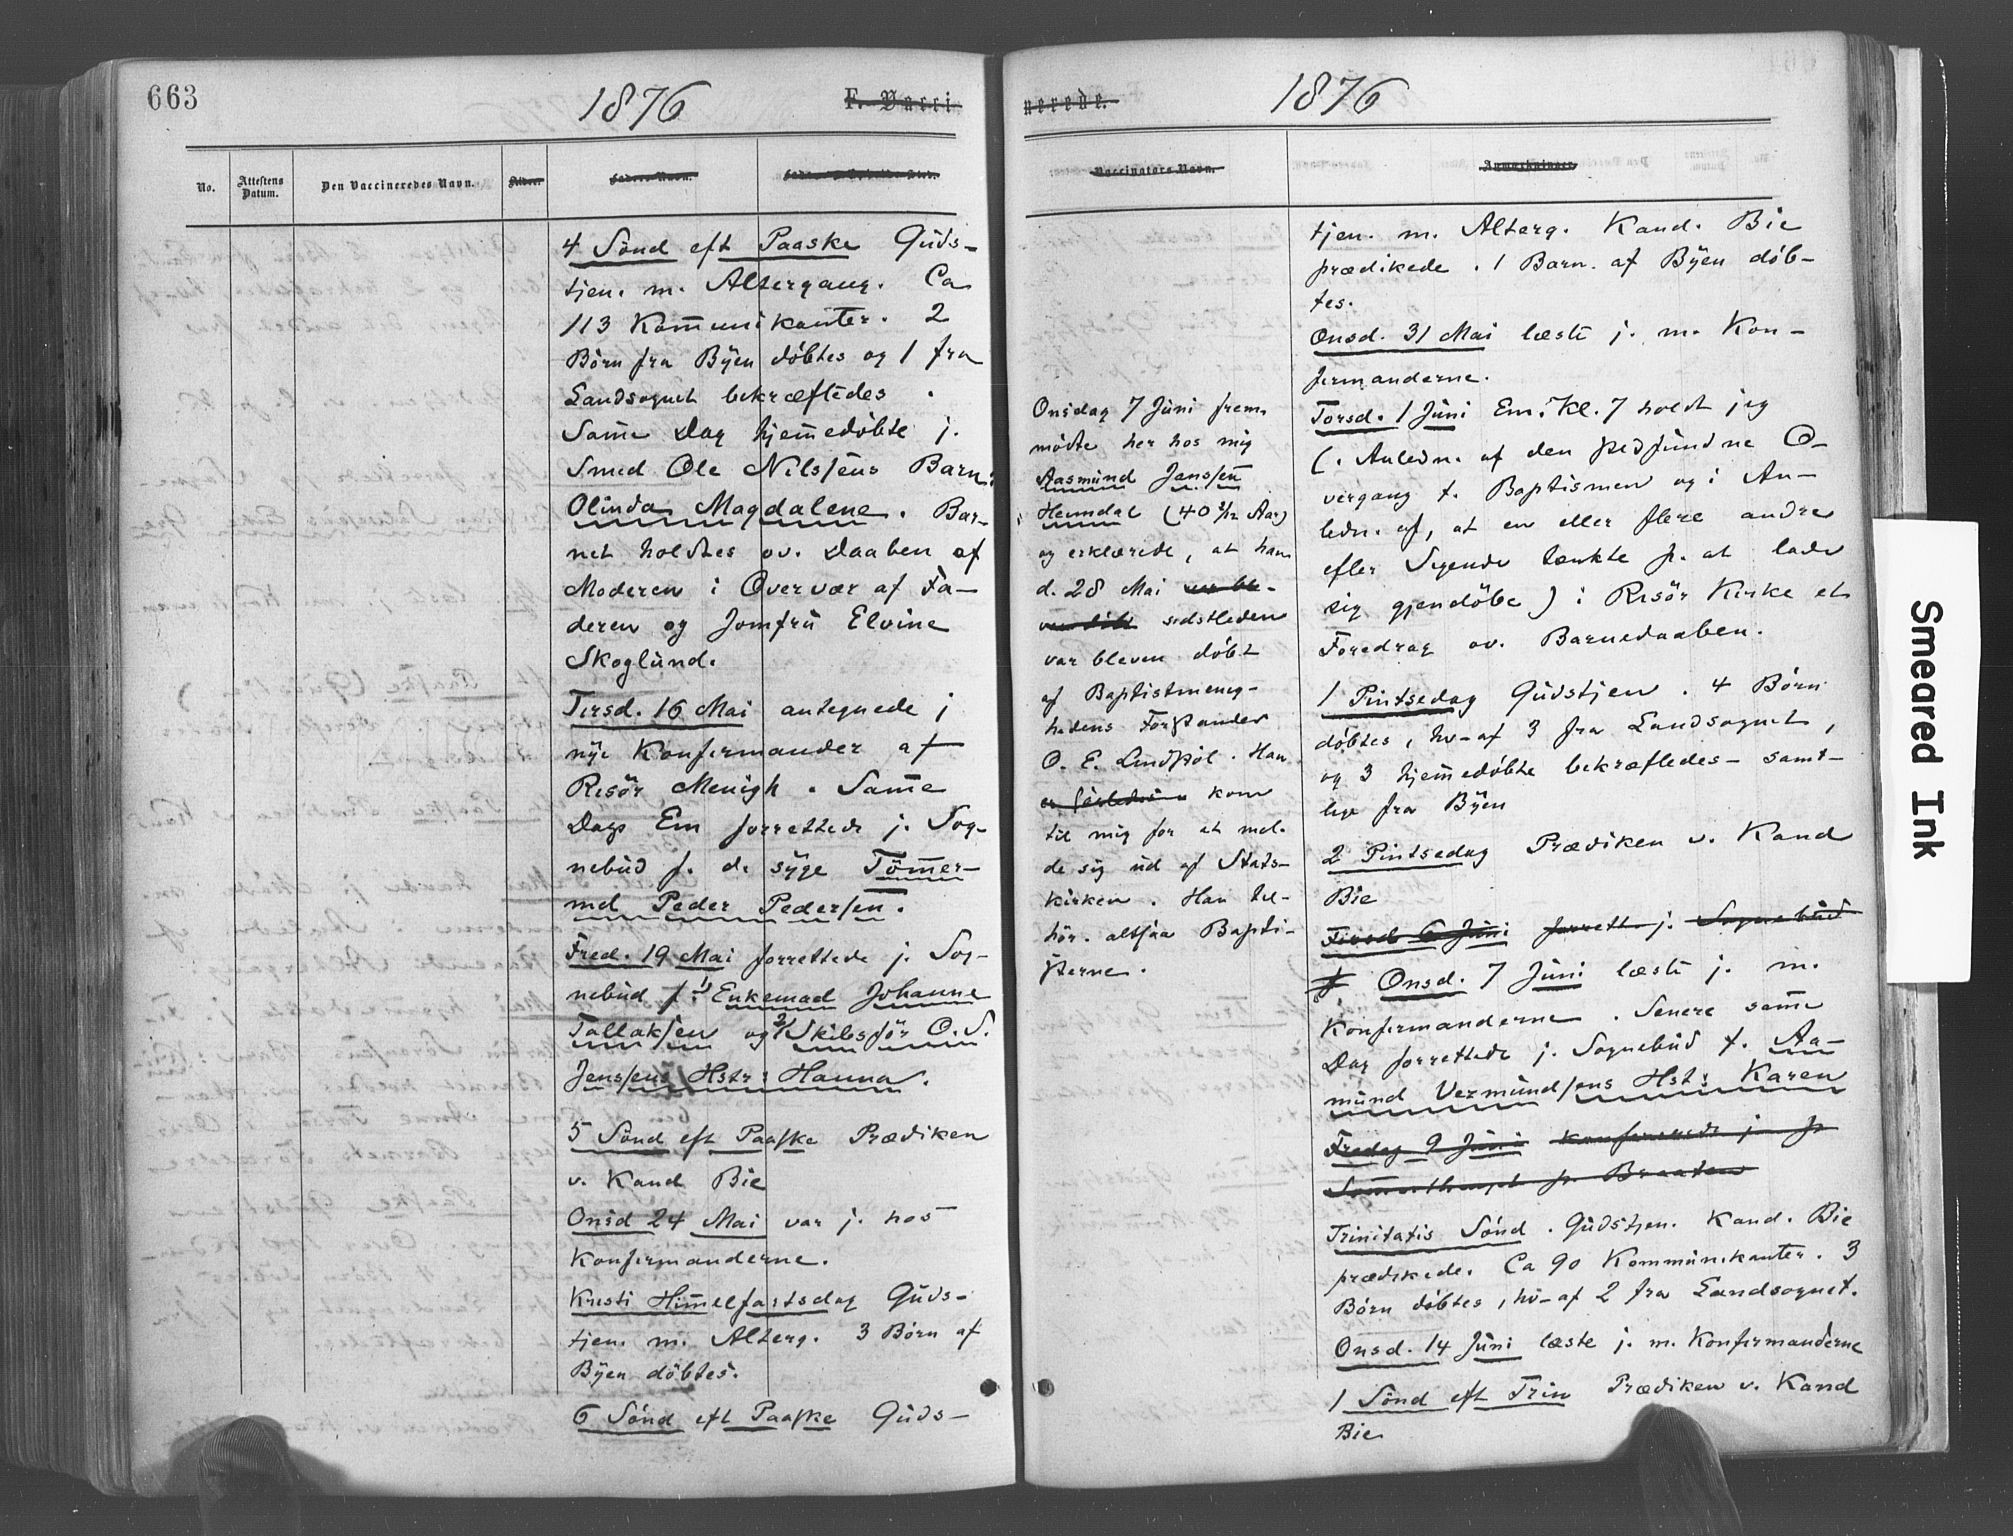 663
1876
F. Vacci
No.
Attestens Datum.
Den Vaccineredes Navn.
Alder.
4 Sönd eft Paaske Guds-
tjen. m. Altergang. Ca
113 Kommunikanter. 2
Börn fra Byen döbtes og 1 fra
Landsognet bekræftedes.
Samme Dag hjemmedöbte j.
Smed Ole Nilssens Barn:
Olinda Magdalene. Bar-
net holdtes ov. Daaben af
Moderen i Overvær af Fa-
deren og Jomfru Elvine
Skoglund.
Tirsd. 16 Mai antegnede j
nye Konfirmander af
Risör Menigh. Samme
Dags Em forrettede j. Sog-
nebud f. d. syge Tömmer-
md Peder Pedersen.
Fred. 19 Mai forrettede j. Sog-
nebud f. 1) Enkemad Johanne
Tallaksen og 2) Skibsför O. S.
Jenssens Hstr: Hanna.
5 Sönd eft Paaske Prædiken
v. Kand Bie
Onsd 24 Mai var j. hos
Konfirmanderne.
Kristi Himmelfartsdag Guds-
tjen. m. Alterg. 3 Börn af
Byen döbtes.
6 Sönd eft Paaske Guds-
nerede.
1876
Vaccinators Navn.
Anmærkninger.
Onsdag 7 Juni frem-
mödte her hos mig
Aasmund Jenssen
Hemdal (40 Aar)
og erklærede, at han
d. 28 Mai
sidstleden
var bleven döbt
af Baptistmenig-
hedens Forstander
O. E. Lindsjöl. Han
kom
til mig for at mel-
de sig ud af Stats-
kirken. Han til-
hör. altsaa Bapti-
sterne.
tjen. m. Alterg. Kand. Bie
prædikede. 1 Barn af Byen döb-
tes.
Onsd. 31 Mai læste j. m. Kon-
firmanderne.
Torsd. 1 Juni Em. Kl. 7 holdt jeg
(i Anledn. af den stedfundne O-
vergang t. Baptismen og i An-
ledn. af, at en eller flere andre
efter Sigende tænkte p. at lade
sig gjendöbe) i Risör Kirke et
Foredrag ov. Barnedaaben.
1 Pintsedag Gudstjen. 4 Börn
döbtes, hv-af 3 fra Landsognet,
og 3 hjemmedöbte bekræftedes - samt-
lige fra Byen
2 Pintsedag Prædiken v. Kand
Bie
Tirsd 6 Juni forrett. j. Sognebud
f. Onsd. 7 Juni læste j. m.
Konfirmanderne. Senere samme
Dag forrettede j. Sognebud f. Aa-
mund Vermundsens Hst: Karen
Fredag 9 Juni konfirerede j. p
p. Braaten
Trinitatis Sönd. Gudstjen. Kand. Bie
prædikede. Ca 90 Kommunikanter. 3
Börn döbtes, hv-af 2 fra Landsognet.
Onsd. 14 Juni læste j. m. Konfirmanderne
1 Sönd eft Trin Prædiken v. Kand
Bie
Smeared Ink